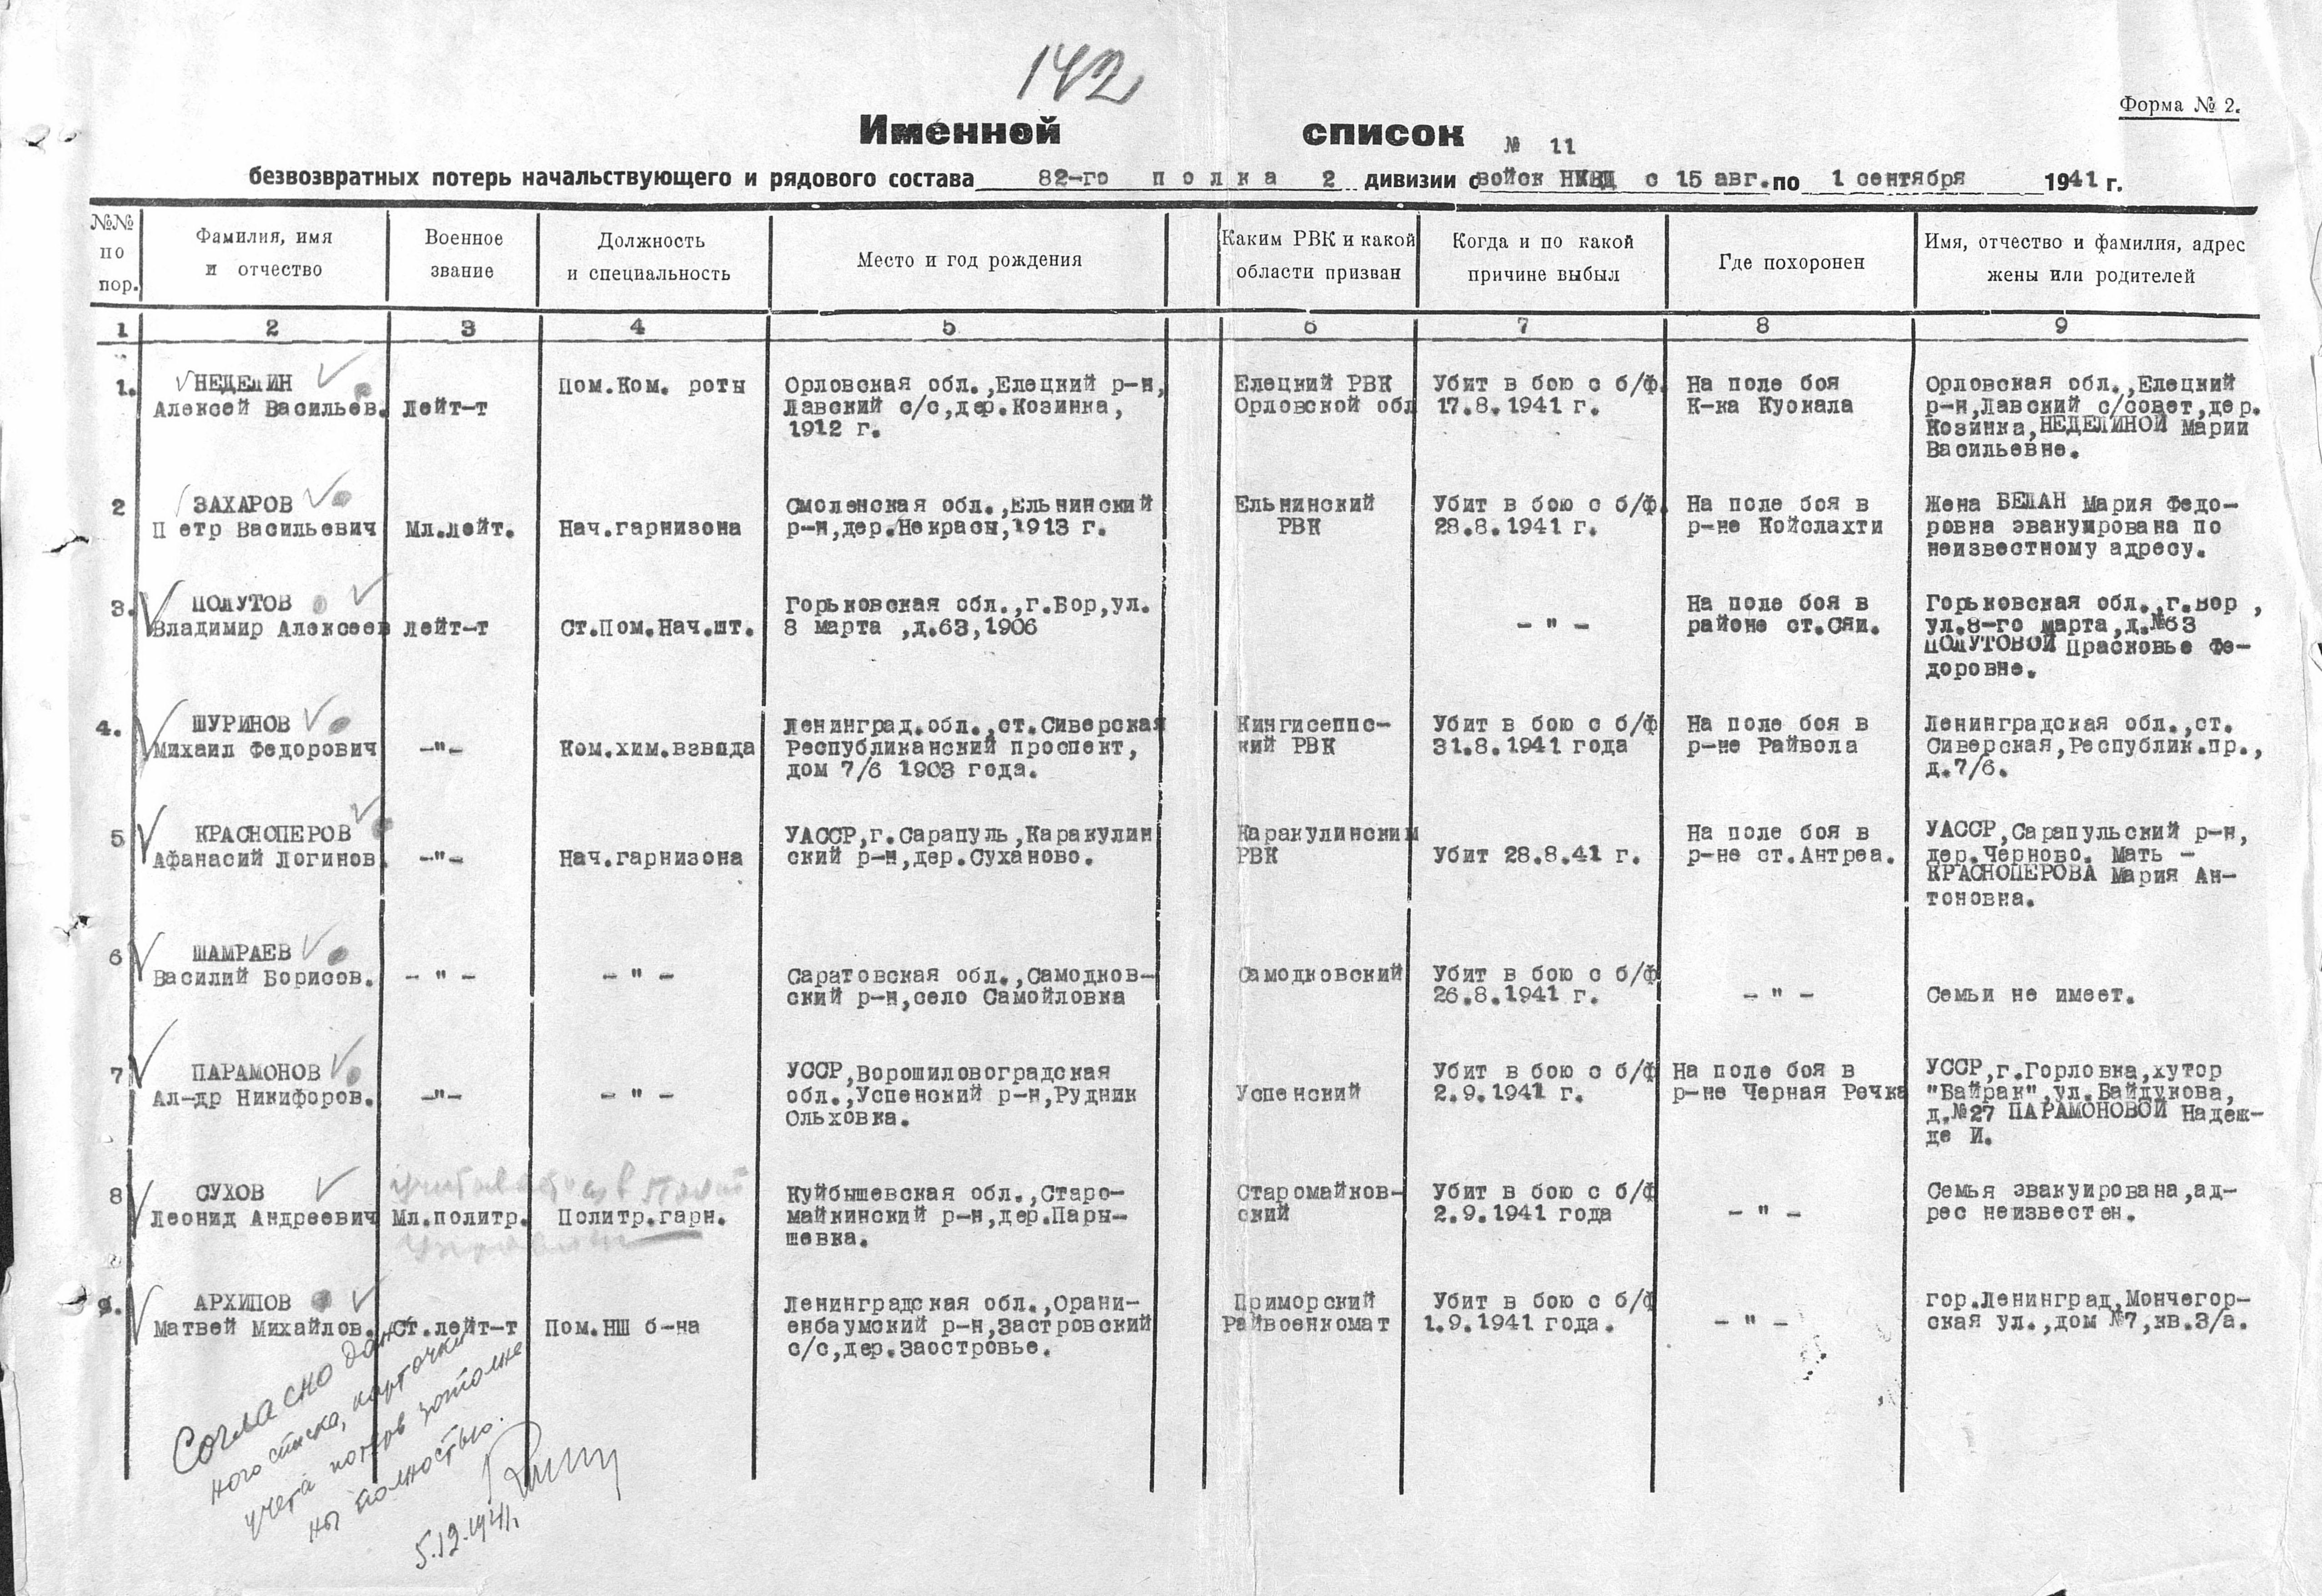 142
Форма № 2.
Именной список
№ 11
безвозвратных потерь начальствующего и рядового состава 82-го полка 2 дивизии с войск НКВД с 15 авг. по 1 сентября 1941 г.
№№ по пор.
Фамилия, имя и отчество
Военное звание
Должность и специальность
Место и год рождения
Каким РВК и какой области призван
Когда и по какой причине выбыл
Где похоронен
Имя, отчество и фамилия, адрес жены или родителей
1 2 3 4 5 6 7 8 9
1.
НЕДЕЛИН
Алексей Васильев.
Лейт-т
Пом.Ком. роты
Орловская обл.,Елецкий р-н,
Лавский с/с,дер.Козинка,
1912 г.
Елецкий РВК
Орловской обл
Убит в бою с б/ф.
17.8.1941 г.
На поле боя
К-ка Куокала
Орловская обл.,Елецкий
р-н,Лавский с/совет,дер.
Козинка,НЕДЕЛИНОЙ Марии
Васильевне.
2
ЗАХАРОВ
П етр Васильевич
Мл.лейт.
Нач.гарнизона
Смоленская обл.,Ельнинский
р-н,дер.Некрасы,1913 г.
Ельнинский
РВК
Убит в бою с б/ф.
28.8.1941 г.
На поле боя в
р-не Койслахти
Жена БЕЛАН Мария Федо-
ровна эвакуирована по
неизвестному адресу.
3.
ПОЛУТОВ
Владимир Алексеев
Лейт-т
Ст.Пом.Нач.шт.
Горьковская обл.,г.Бор,ул.
8 марта ,д.63,1906
- " -
На поле боя в
районе ст.Сяи.
Горьковская обл.,г.Бор ,
ул.8-го марта,д.№63
ПОЛУТОВОЙ Прасковье Фе-
доровне.
4.
ШУРИНОВ
Михаил Федорович
-"-
Ком.хим.взвода
Ленинград.обл.,ст.Сиверская
Республиканский проспект,
дом 7/6 1903 года.
Кингисеппс-
кий РВК
Убит в бою с б/ф
31.8.1941 года
На поле боя в
р-не Райвола
Ленинградская обл.,ст.
Сиверская,Республик.пр.,
д.7/6.
5
КРАСНОПЕРОВ
Афанасий Логинов.
-"-
Нач.гарнизона
УАССР,г.Сарапуль,Каракулин
ский р-н,дер.Суханово.
Каракулинский
РВК
Убит 28.8.41 г.
На поле боя в
р-не ст.Антреа.
УАССР,Сарапульский р-н,
дер.Черново. Мать -
КРАСНОПЕРОВА Мария Ан-
тоновна.
6
ШАМРАЕВ
Василий Борисов.
- " -
- " -
Саратовская обл.,Самодков-
ский р-н,село Самойловка
Самодковский
Убит в бою с б/ф
26.8.1941 г.
- " -
Семьи не имеет.
7
ПАРАМОНОВ
Ал-др Никифоров.
-"-
- " -
УССР,Ворошиловоградская
обл.,Успенский р-н,Рудник
Ольховка.
Успенский
Убит в бою с б/ф
2.9.1941 г.
На поле боя в
р-не Черная Речка
УССР,г.Горловка,хутор
"Байрак",ул.Байдукова,
д.№27 ПАРАМОНОВОЙ Надеж-
де И.
8
СУХОВ
Леонид Андреевич
Мл.политр.
Политр.гарн.
Куйбышевская обл.,Старо-
майкинский р-н,дер.Пары-
шевка.
Старомайков-
ский
Убит в бою с б/ф
2.9.1941 года
- " -
Семья эвакуирована,ад-
рес неизвестен.
9.
АРХИПОВ
Матвей Михайлов.
Ст.лейт-т
Пом.НШ б-на
Ленинградская обл.,Орани-
енбаумский р-н,Застровский
с/с,дер.Заостровье.
Приморский
Райвоенкомат
Убит в бою с б/ф
1.9.1941 года.
- " -
гор.Ленинград,Мончегор-
ская ул.,дом №7,кв.3/а.
Согласно дан
ного списка, карточки
учета потерь заполне
ны полностью.
5.12.1941г.